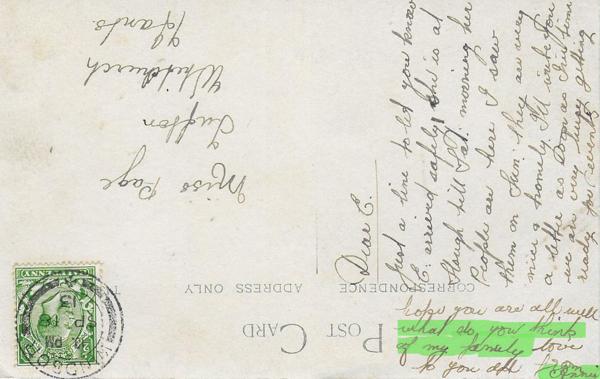 POST CARD
CORRESPONDENCE
ADDRESS ONLY
Dear E.
Just a line to let you know
E. arrived safely she is at
Slough till Sat. morning her
People are here I saw
them on Sun. they are very
nice & homely. I'll write you
a letter as soon as I've time
we are very busy getting
ready for
hope you are all well
what do you think
of my family love
to you all from
Annie
Miss Page
Tufton
Whitchurch
Hants.
PENNY
WINDSOR
PM
SP 18
13